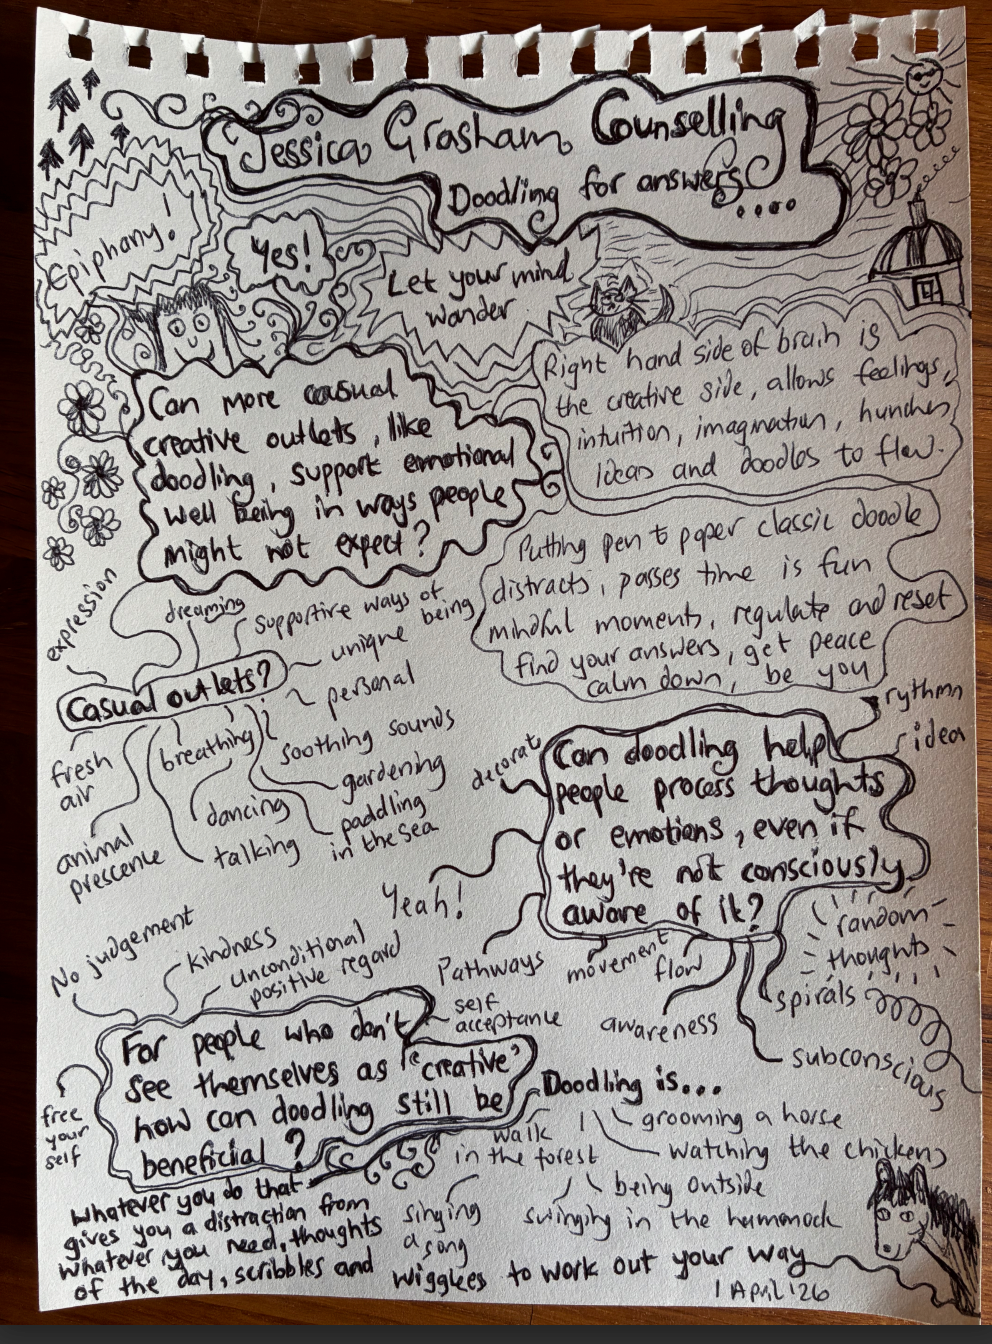 Jessica Grasham Counselling
Doodling for answers
....
Epiphany!
Yes!
Let your mind
wander
Can more casual
creative outlets, like
doodling, support emotional
well being in ways people
might not expect?
Right hand side of brain is
the creative side, allows feelings,
intuition, imagination, hunches
ideas and doodles to flow.
Putting pen to paper classic doodle
distracts, passes time is fun
mindful moments, regulate and reset
find your answers, get peace
calm down, be you
Casual outlets?
expression
dreaming
supportive ways of
being
unique
personal
soothing sounds
gardening
paddling
in the sea
breathing
dancing
talking
fresh
air
animal
prescence
Can doodling help
people process thoughts
or emotions, even if
they're not consciously
aware of it?
decorat
rythmn
idea
Yeah!
Pathways
movement
flow
awareness
random
thoughts
spirals
subconscious
For people who don't
see themselves as "creative"
how can doodling still be
beneficial?
No judgement
kindness
unconditional
positive regard
self
acceptance
free
your
self
Whatever you do that
gives you a distraction from
whatever you need, thoughts
of the day, scribbles and
wigglees to work out your way
Doodling is...
walk
in the forest
grooming a horse
watching the chickens
being outside
swinging in the hammock
singing
a song
1 April '26